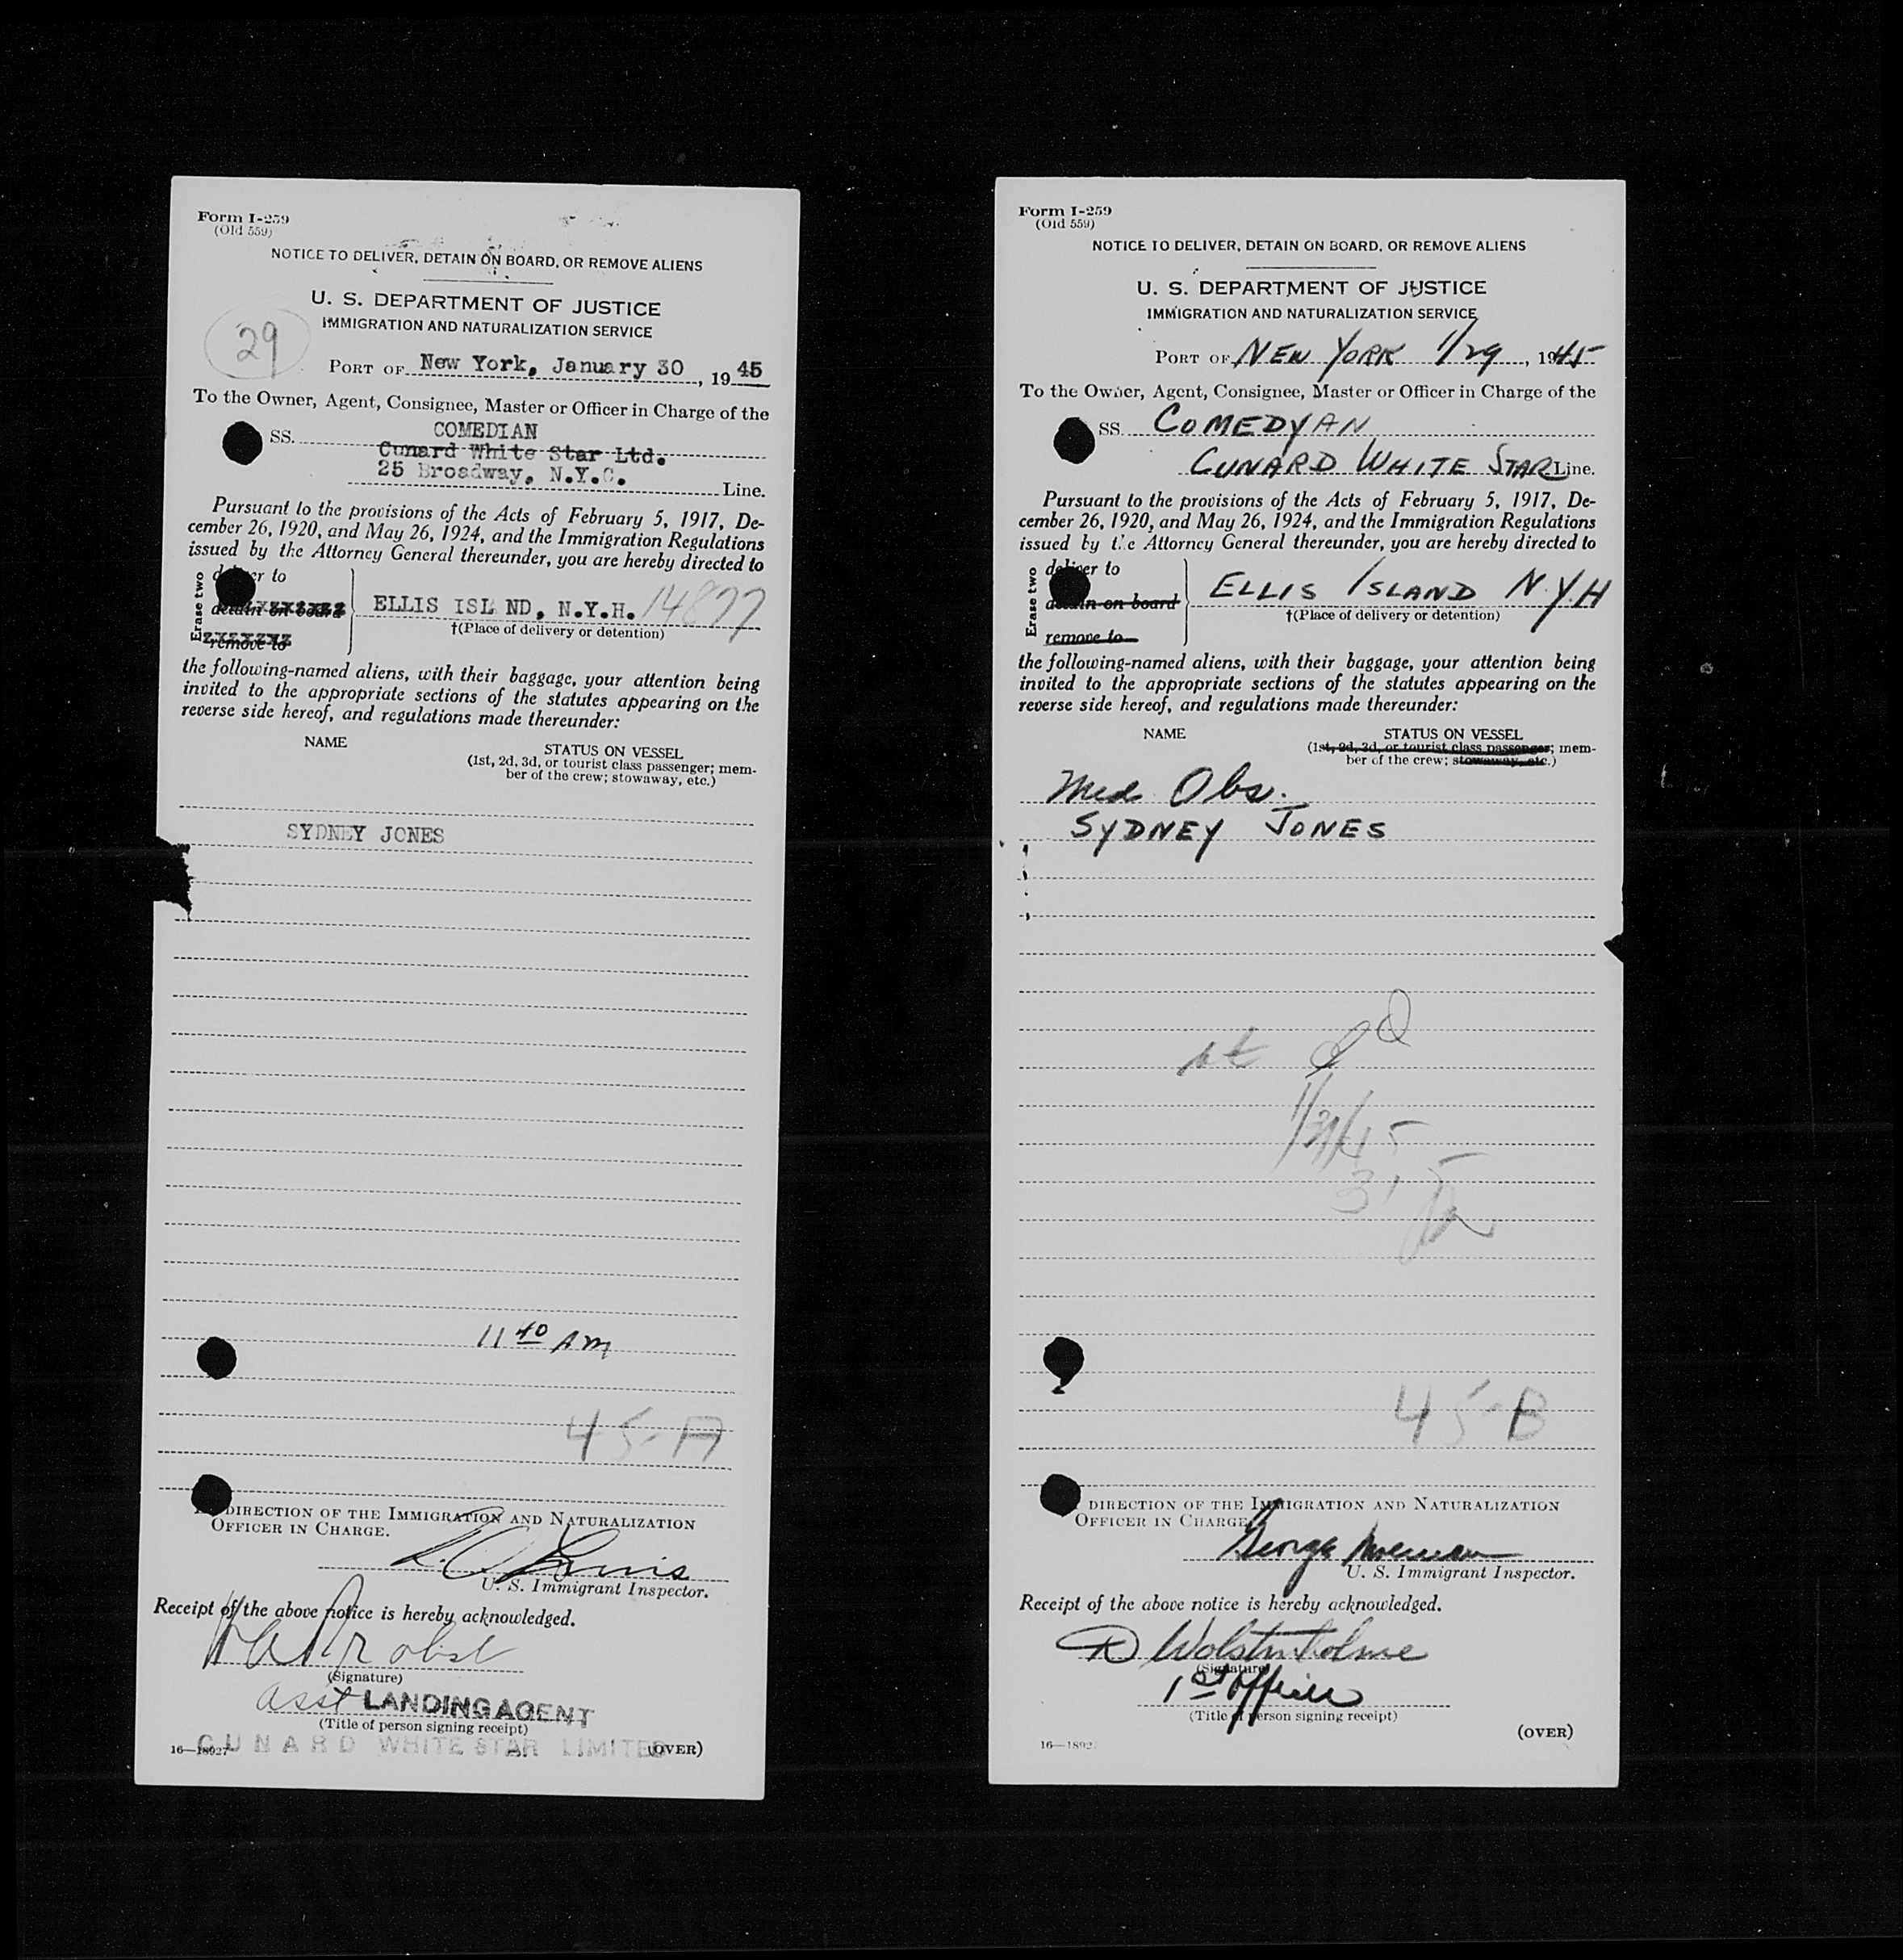 Form I-259
(Old 559)
NOTICE TO DELIVER, DETAIN ON BOARD, OR REMOVE ALIENS
U. S. DEPARTMENT OF JUSTICE
IMMIGRATION AND NATURALIZATION SERVICE
29
PORT OF New York, January 30, 1945
To the Owner, Agent, Consignee, Master or Officer in Charge of the
SS. COMEDIAN
Cunard White Star Ltd.
25 Broadway, N.Y.C. Line.
Pursuant to the provisions of the Acts of February 5, 1917, De-
cember 26, 1920, and May 26, 1924, and the Immigration Regulations
issued by the Attorney General thereunder, you are hereby directed to
Erase two
deliver to
detain on board
remove to
ELLIS ISL ND, N.Y.H. 14877
†(Place of delivery or detention)
the following-named aliens, with their baggage, your attention being
invited to the appropriate sections of the statutes appearing on the
reverse side hereof, and regulations made thereunder:
NAME STATUS ON VESSEL
(1st, 2d, 3d, or tourist class passenger; mem-
ber of the crew; stowaway, etc.)
SYDNEY JONES
11 40 AM
45-A
DIRECTION OF THE IMMIGRATION AND NATURALIZATION
OFFICER IN CHARGE.
U. S. Immigrant Inspector.
Receipt of the above notice is hereby acknowledged.
(Signature)
asst LANDING AGENT
(Title of person signing receipt)
CUNARD WHITE STAR LIMITED
16—18927 (OVER)
Form I-259
(Old 559)
NOTICE TO DELIVER, DETAIN ON BOARD, OR REMOVE ALIENS
U. S. DEPARTMENT OF JUSTICE
IMMIGRATION AND NATURALIZATION SERVICE
PORT OF NEW YORK 1/29, 1945
To the Owner, Agent, Consignee, Master or Officer in Charge of the
SS. COMEDYAN
CUNARD WHITE STAR Line.
Pursuant to the provisions of the Acts of February 5, 1917, De-
cember 26, 1920, and May 26, 1924, and the Immigration Regulations
issued by the Attorney General thereunder, you are hereby directed to
Erase two
deliver to
detain on board
remove to
ELLIS ISLAND N.Y.H
†(Place of delivery or detention)
the following-named aliens, with their baggage, your attention being
invited to the appropriate sections of the statutes appearing on the
reverse side hereof, and regulations made thereunder:
NAME STATUS ON VESSEL
(1st, 2d, 3d, or tourist class passenger; mem-
ber of the crew; stowaway, etc.)
Med Obs.
SYDNEY JONES
31
45-B
DIRECTION OF THE IMMIGRATION AND NATURALIZATION
OFFICER IN CHARGE
George
U. S. Immigrant Inspector.
Receipt of the above notice is hereby acknowledged.
R Wolstenholme
(Signature)
1st Officer
(Title of person signing receipt)
(OVER)
16—1892